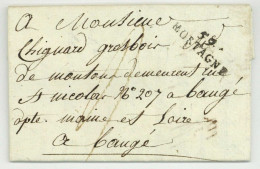 A Monsieur
Chignard gresboir
de montons demeurent rue
St nicolas No 207 a baugé
dpte maine et Loire
a baugé
58
MORTAGNE